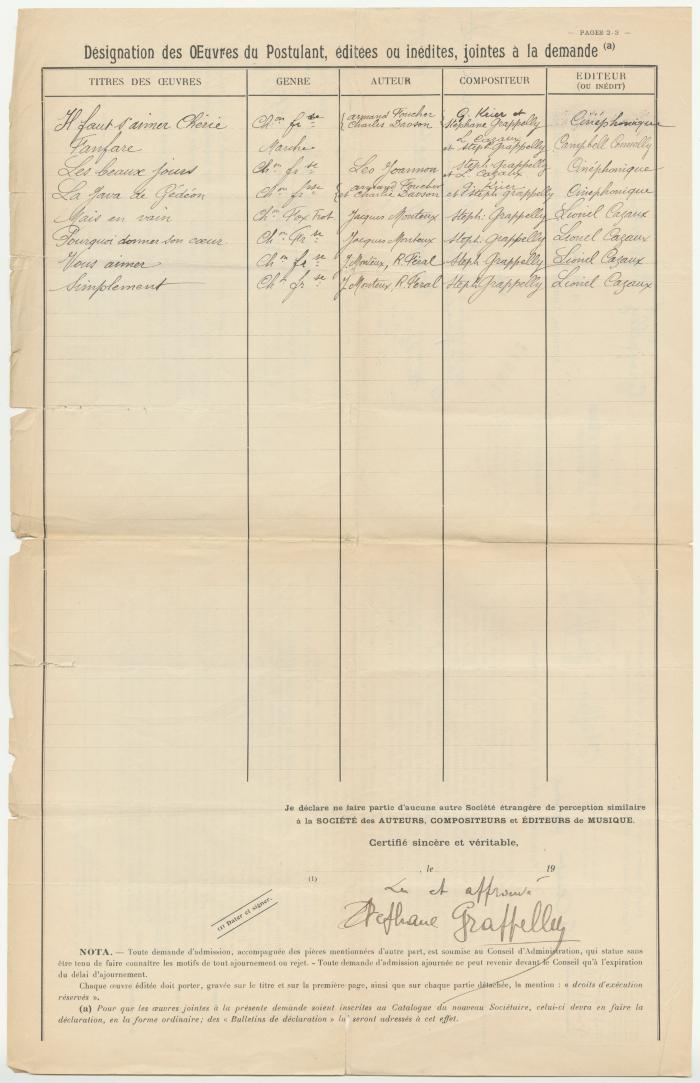 — PAGES 2-3 —
Désignation des Œuvres du Postulant, éditées ou inédites, jointes à la demande (a)
TITRES DES ŒUVRES GENRE AUTEUR COMPOSITEUR EDITEUR (OU INÉDIT)
Il faut s'aimer Chérie Ch on fr se Armand Foucher Charles Davson G. Krier et Stéphane Grappelly Cinéphonique
Fanfare Marche L. Cazaux et Steph. Grappelly Campbell Connolly
Les beaux jours Ch on fr se Leo Joannon Steph Grappelly et L. Cazaux Cinéphonique
La Java de Gédéon Ch on fr se Armand Foucher et Charles Davson G. Krier et Steph Grappelly Cinéphonique
Mais en vain Ch on Fox Trot Jacques Monteux Steph: Grappelly Lionel Cazaux
Pourquoi donner son cœur Ch on Fr se Jacques Monteux Steph. Grappelly Lionel Cazaux
Vous aimer Ch on fr se J. Monteux, R. Féral Steph Grappelly Lionel Cazaux
Simplement Ch on fr se J. Monteux, R. Féral Steph. Grappelly Lionel Cazaux
Je déclare ne faire partie d'aucune autre Société étrangère de perception similaire
à la SOCIÉTÉ des AUTEURS, COMPOSITEURS et ÉDITEURS de MUSIQUE.
Certifié sincère et véritable,
, le 19
(1)
Lu et approuvé
Stéphane Grappelly
(1) Dater et signer.
NOTA. — Toute demande d'admission, accompagnée des pièces mentionnées d'autre part, est soumise au Conseil d'Administration, qui statue sans
être tenu de faire connaître les motifs de tout ajournement ou rejet. - Toute demande d'admission ajournée ne peut revenir devant le Conseil qu'à l'expiration
du délai d'ajournement.
Chaque œuvre éditée doit porter, gravée sur le titre et sur la première page, ainsi que sur chaque partie détachée, la mention : « droits d'exécution
réservés ».
(a) Pour que les œuvres jointes à la présente demande soient inscrites au Catalogue du nouveau Sociétaire, celui-ci devra en faire la
déclaration, en la forme ordinaire; des « Bulletins de déclaration » lui seront adressés à cet effet.